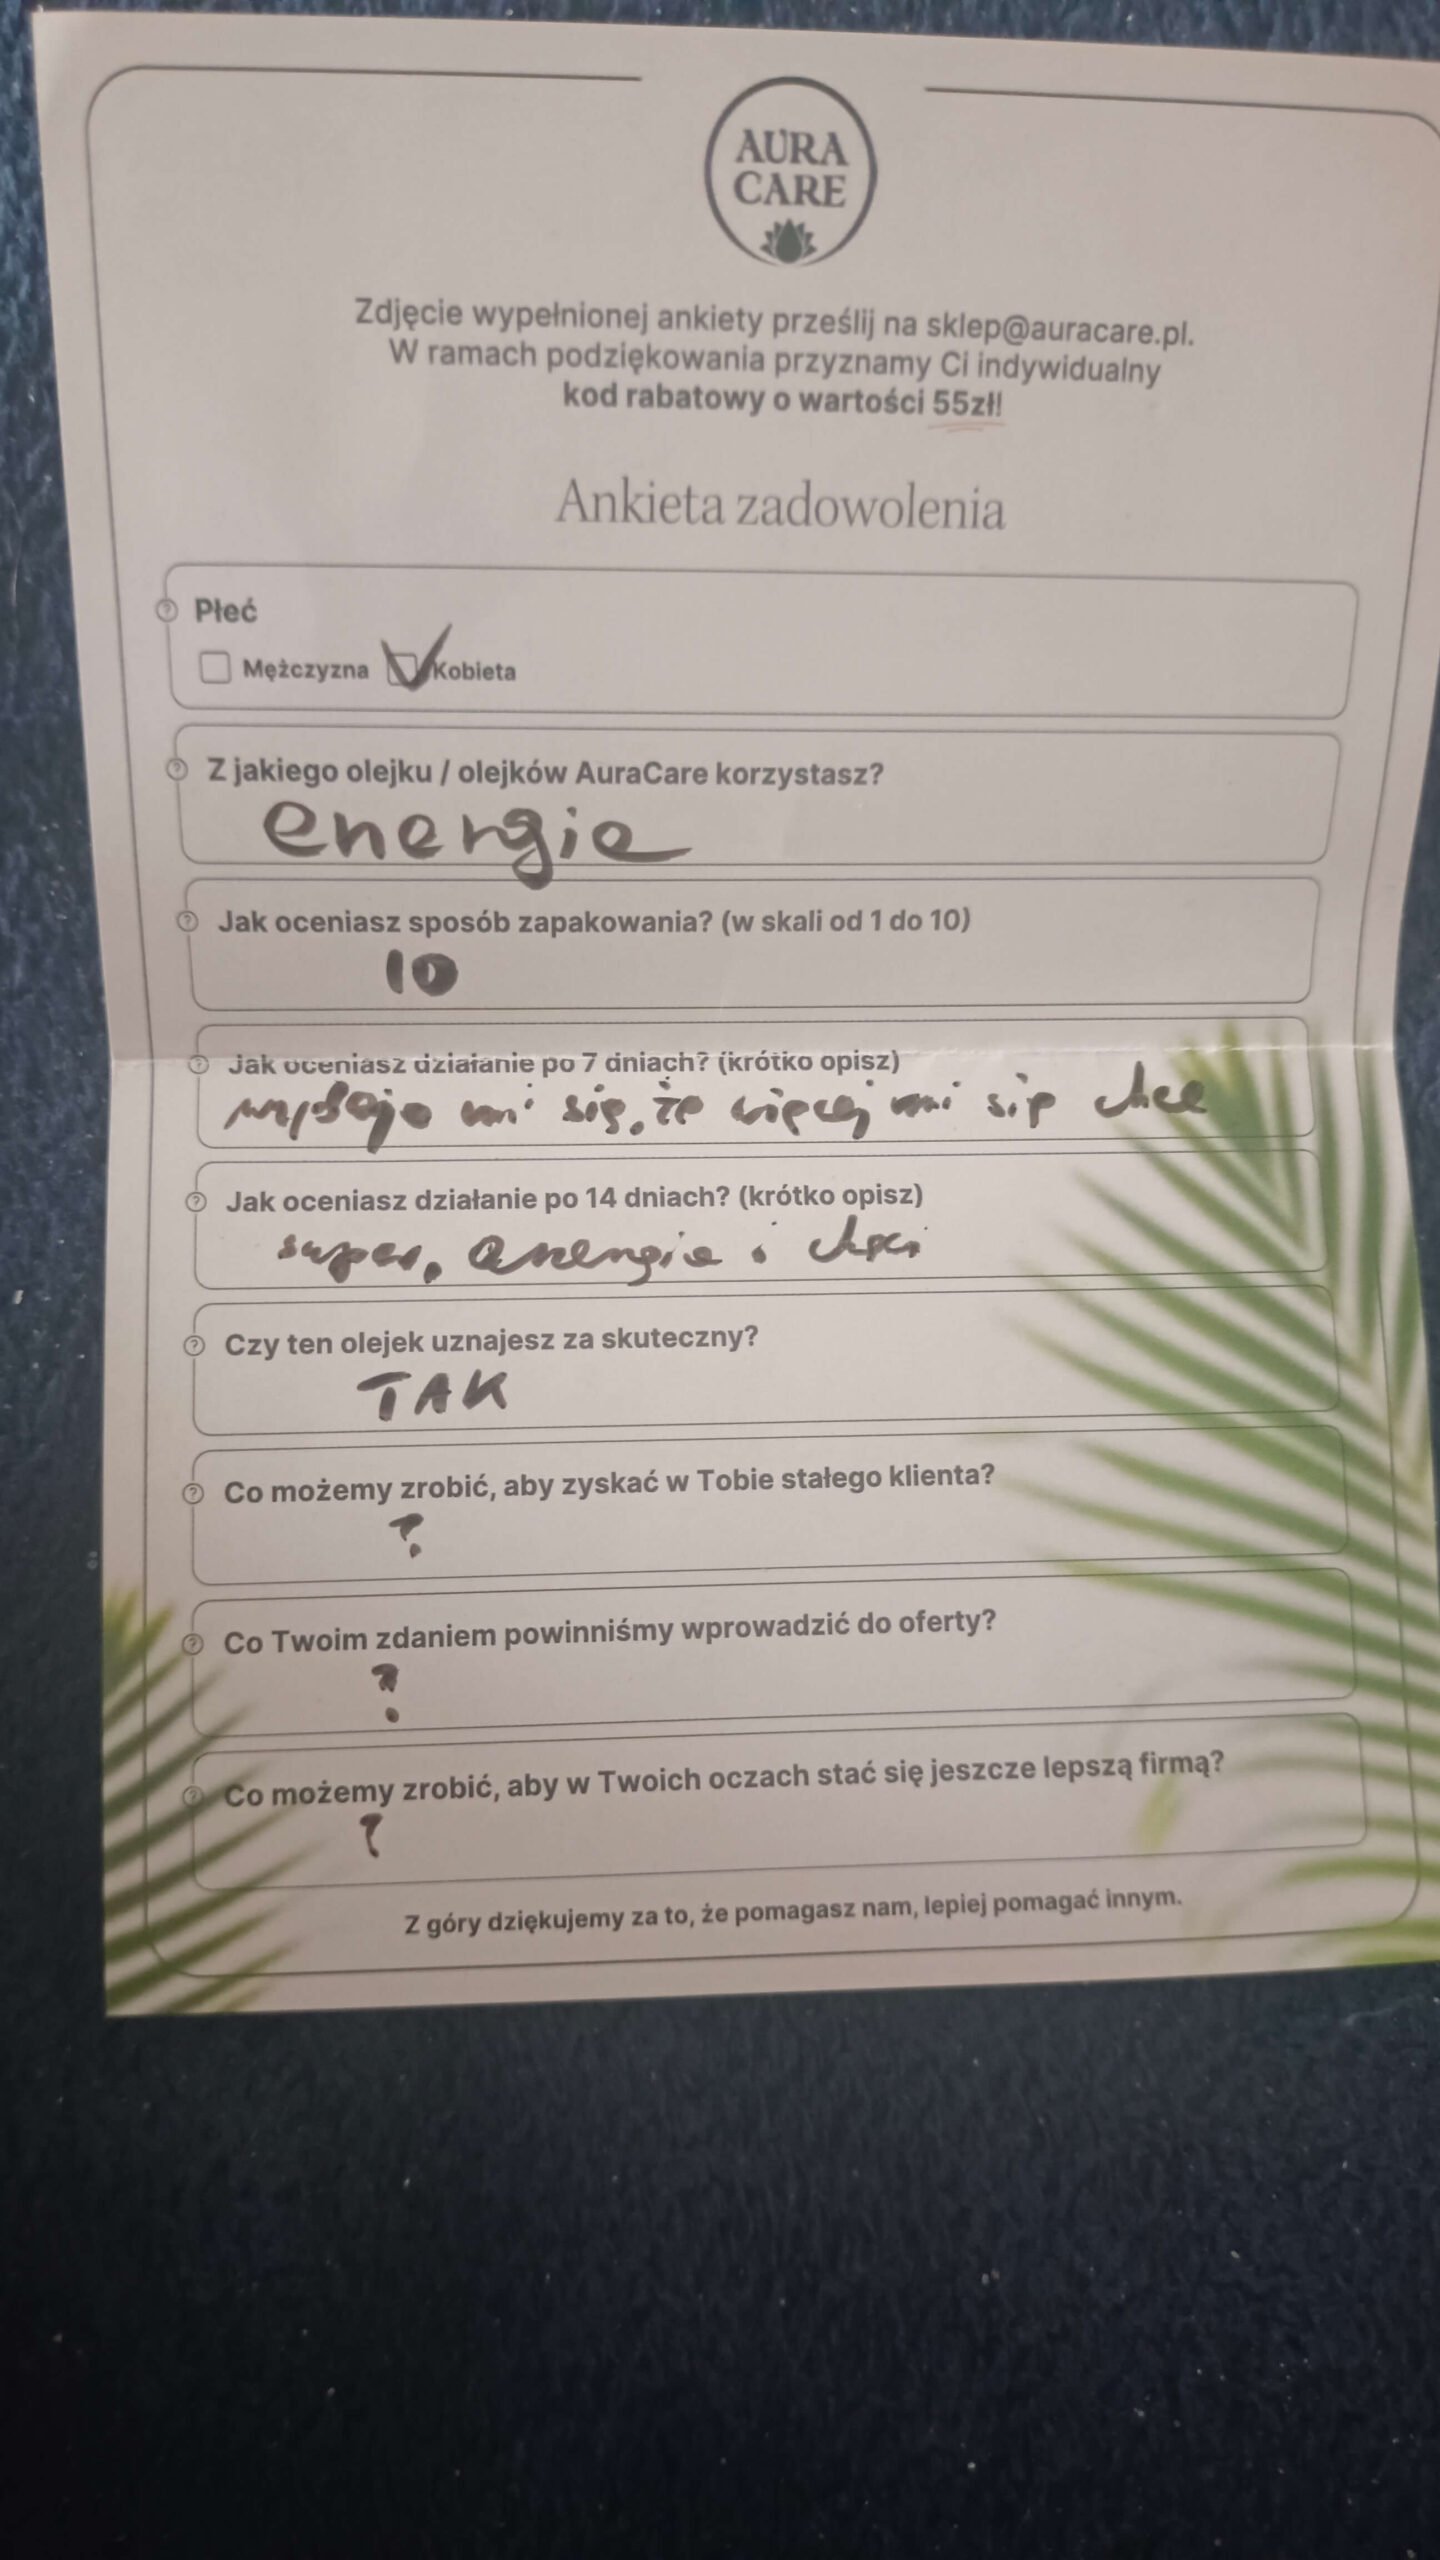 AURA
CARE
Zdjęcie wypełnionej ankiety prześlij na sklep@auracare.pl.
W ramach podziękowania przyznamy Ci indywidualny
kod rabatowy o wartości 55zł!
Ankieta zadowolenia
Płeć
Mężczyzna Kobieta
Z jakiego olejku / olejków AuraCare korzystasz?
energia
Jak oceniasz sposób zapakowania? (w skali od 1 do 10)
10
Jak oceniasz działanie po 7 dniach? (krótko opisz)
wydaje mi się, że więcej mi się chce
Jak oceniasz działanie po 14 dniach? (krótko opisz)
super, energia i chęci
Czy ten olejek uznajesz za skuteczny?
TAK
Co możemy zrobić, aby zyskać w Tobie stałego klienta?
?
Co Twoim zdaniem powinniśmy wprowadzić do oferty?
?
Co możemy zrobić, aby w Twoich oczach stać się jeszcze lepszą firmą?
?
Z góry dziękujemy za to, że pomagasz nam, lepiej pomagać innym.